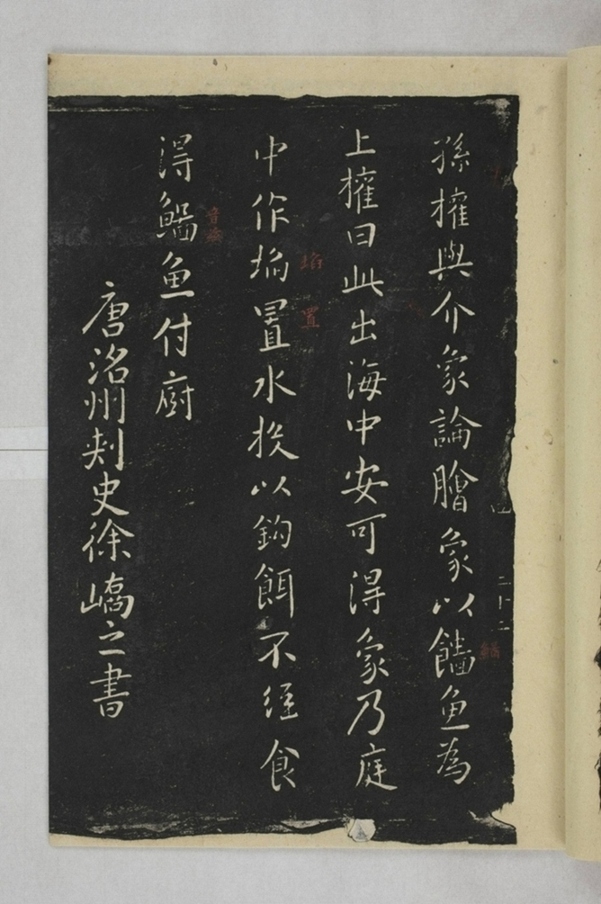 孫權與介象論膾象以鯔魚為
上權曰此出海中安可得象乃庭
中作埳置水投以鈎餌不經食
得鯔魚付廚
唐洺州刾史徐嶠之書
埳
置
二十二